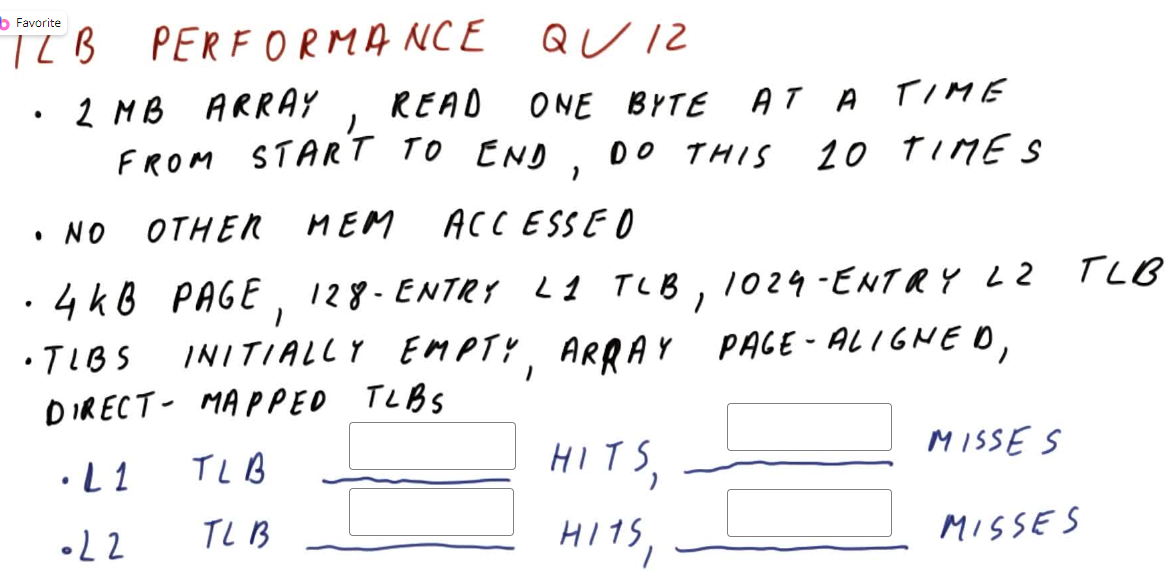 Favorite
TLB PERFORMANCE QUIZ
• 2 MB ARRAY, READ ONE BYTE AT A TIME
FROM START TO END, DO THIS 10 TIMES
• NO OTHER MEM ACCESSED
• 4kB PAGE, 128-ENTRY L1 TLB, 1024-ENTRY L2 TLB
• TLBS INITIALLY EMPTY, ARRAY PAGE-ALIGNED,
DIRECT-MAPPED TLBs
• L1 TLB HITS, MISSES
• L2 TLB HITS, MISSES